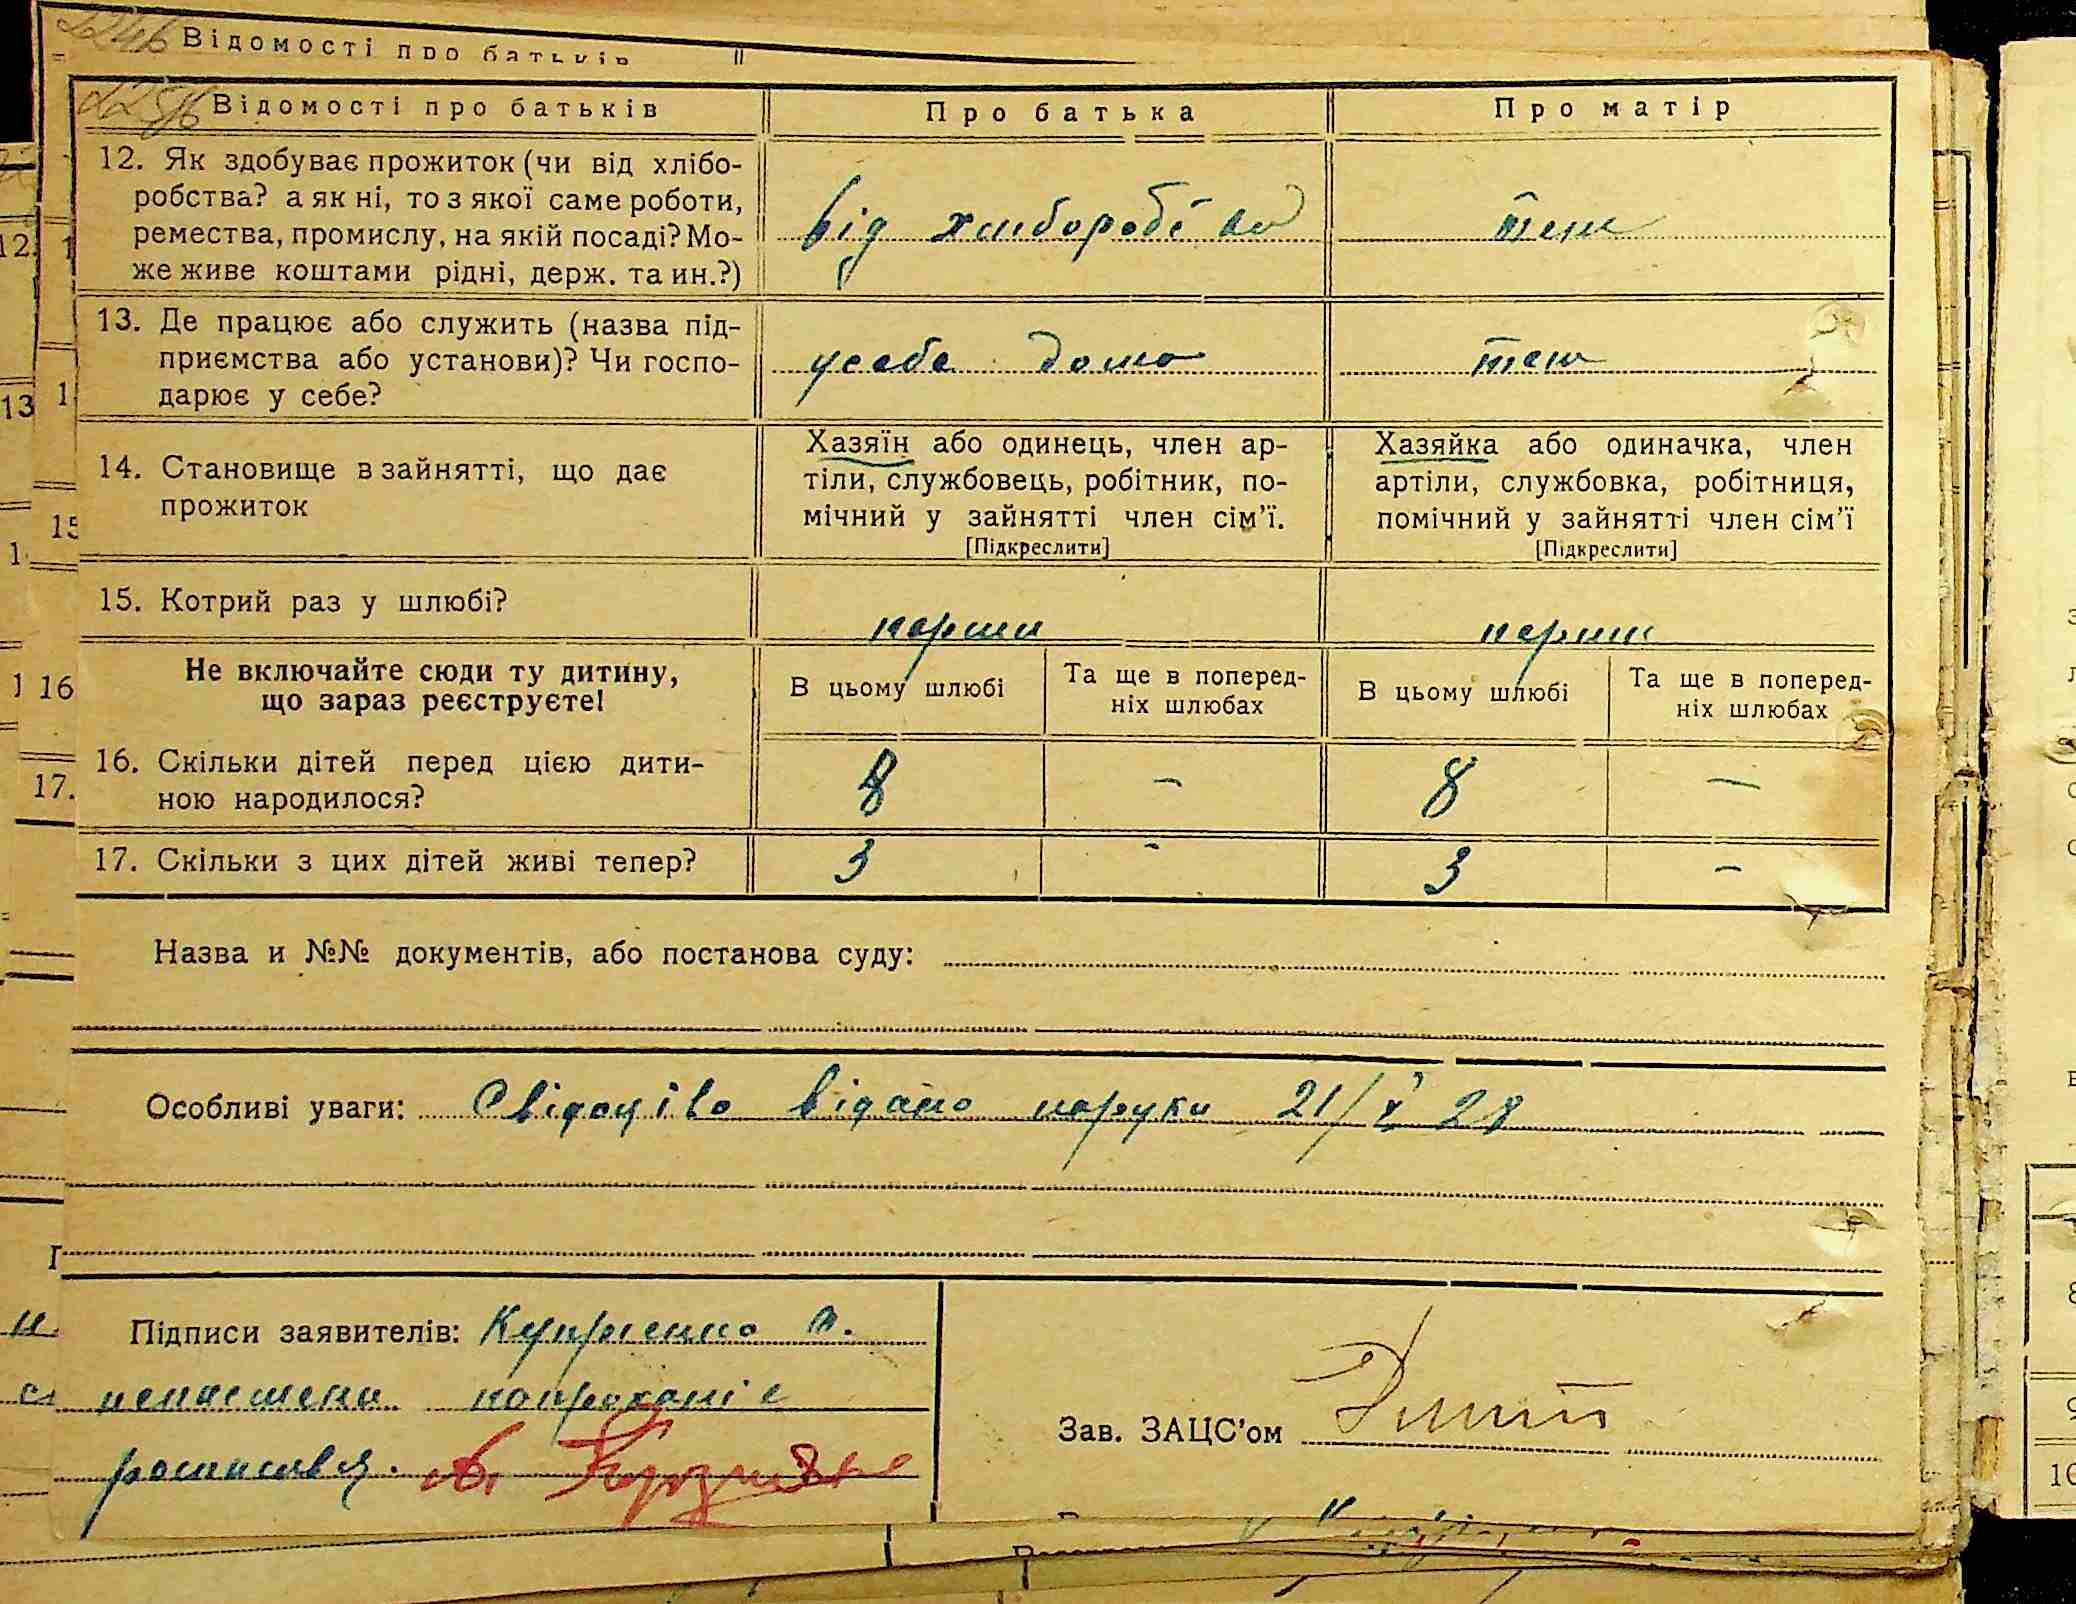 Відомості про батьків
Відомості про батьків Про батька Про матір
12. Як здобуває прожиток (чи від хлібо-
робства? а як ні, то з якої саме роботи,
ремества, промислу, на якій посаді? Мо-
же живе коштами рідні, держ. та ин.?)
від хліборобства теж
13. Де працює або служить (назва під-
приємства або установи)? Чи госпо-
дарює у себе?
у себе дома теж
14. Становище в зайнятті, що дає
прожиток
Хазяїн або одинець, член ар-
тіли, службовець, робітник, по-
мічний у зайнятті член сім'ї.
[Підкреслити]
Хазяйка або одиначка, член
артіли, службовка, робітниця,
помічний у зайнятті член сім'ї
[Підкреслити]
15. Котрий раз у шлюбі?
перши перши
Не включайте сюди ту дитину,
що зараз реєструєте!
В цьому шлюбі
Та ще в поперед-
ніх шлюбах
В цьому шлюбі
Та ще в поперед-
ніх шлюбах
16. Скільки дітей перед цією дити-
ною народилося?
8 – 8 –
17. Скільки з цих дітей живі тепер?
3 - 3 –
Назва и №№ документів, або постанова суду:
Особливі уваги: видано наруки 21/X 28
Підписи заявителів:
Зав. ЗАЦС'ом
12
13
15
16
17.